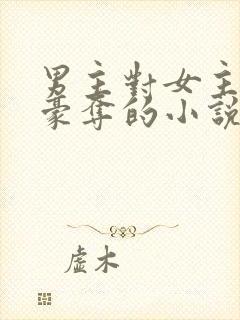 男主對女主
豪奪的小說
虛木